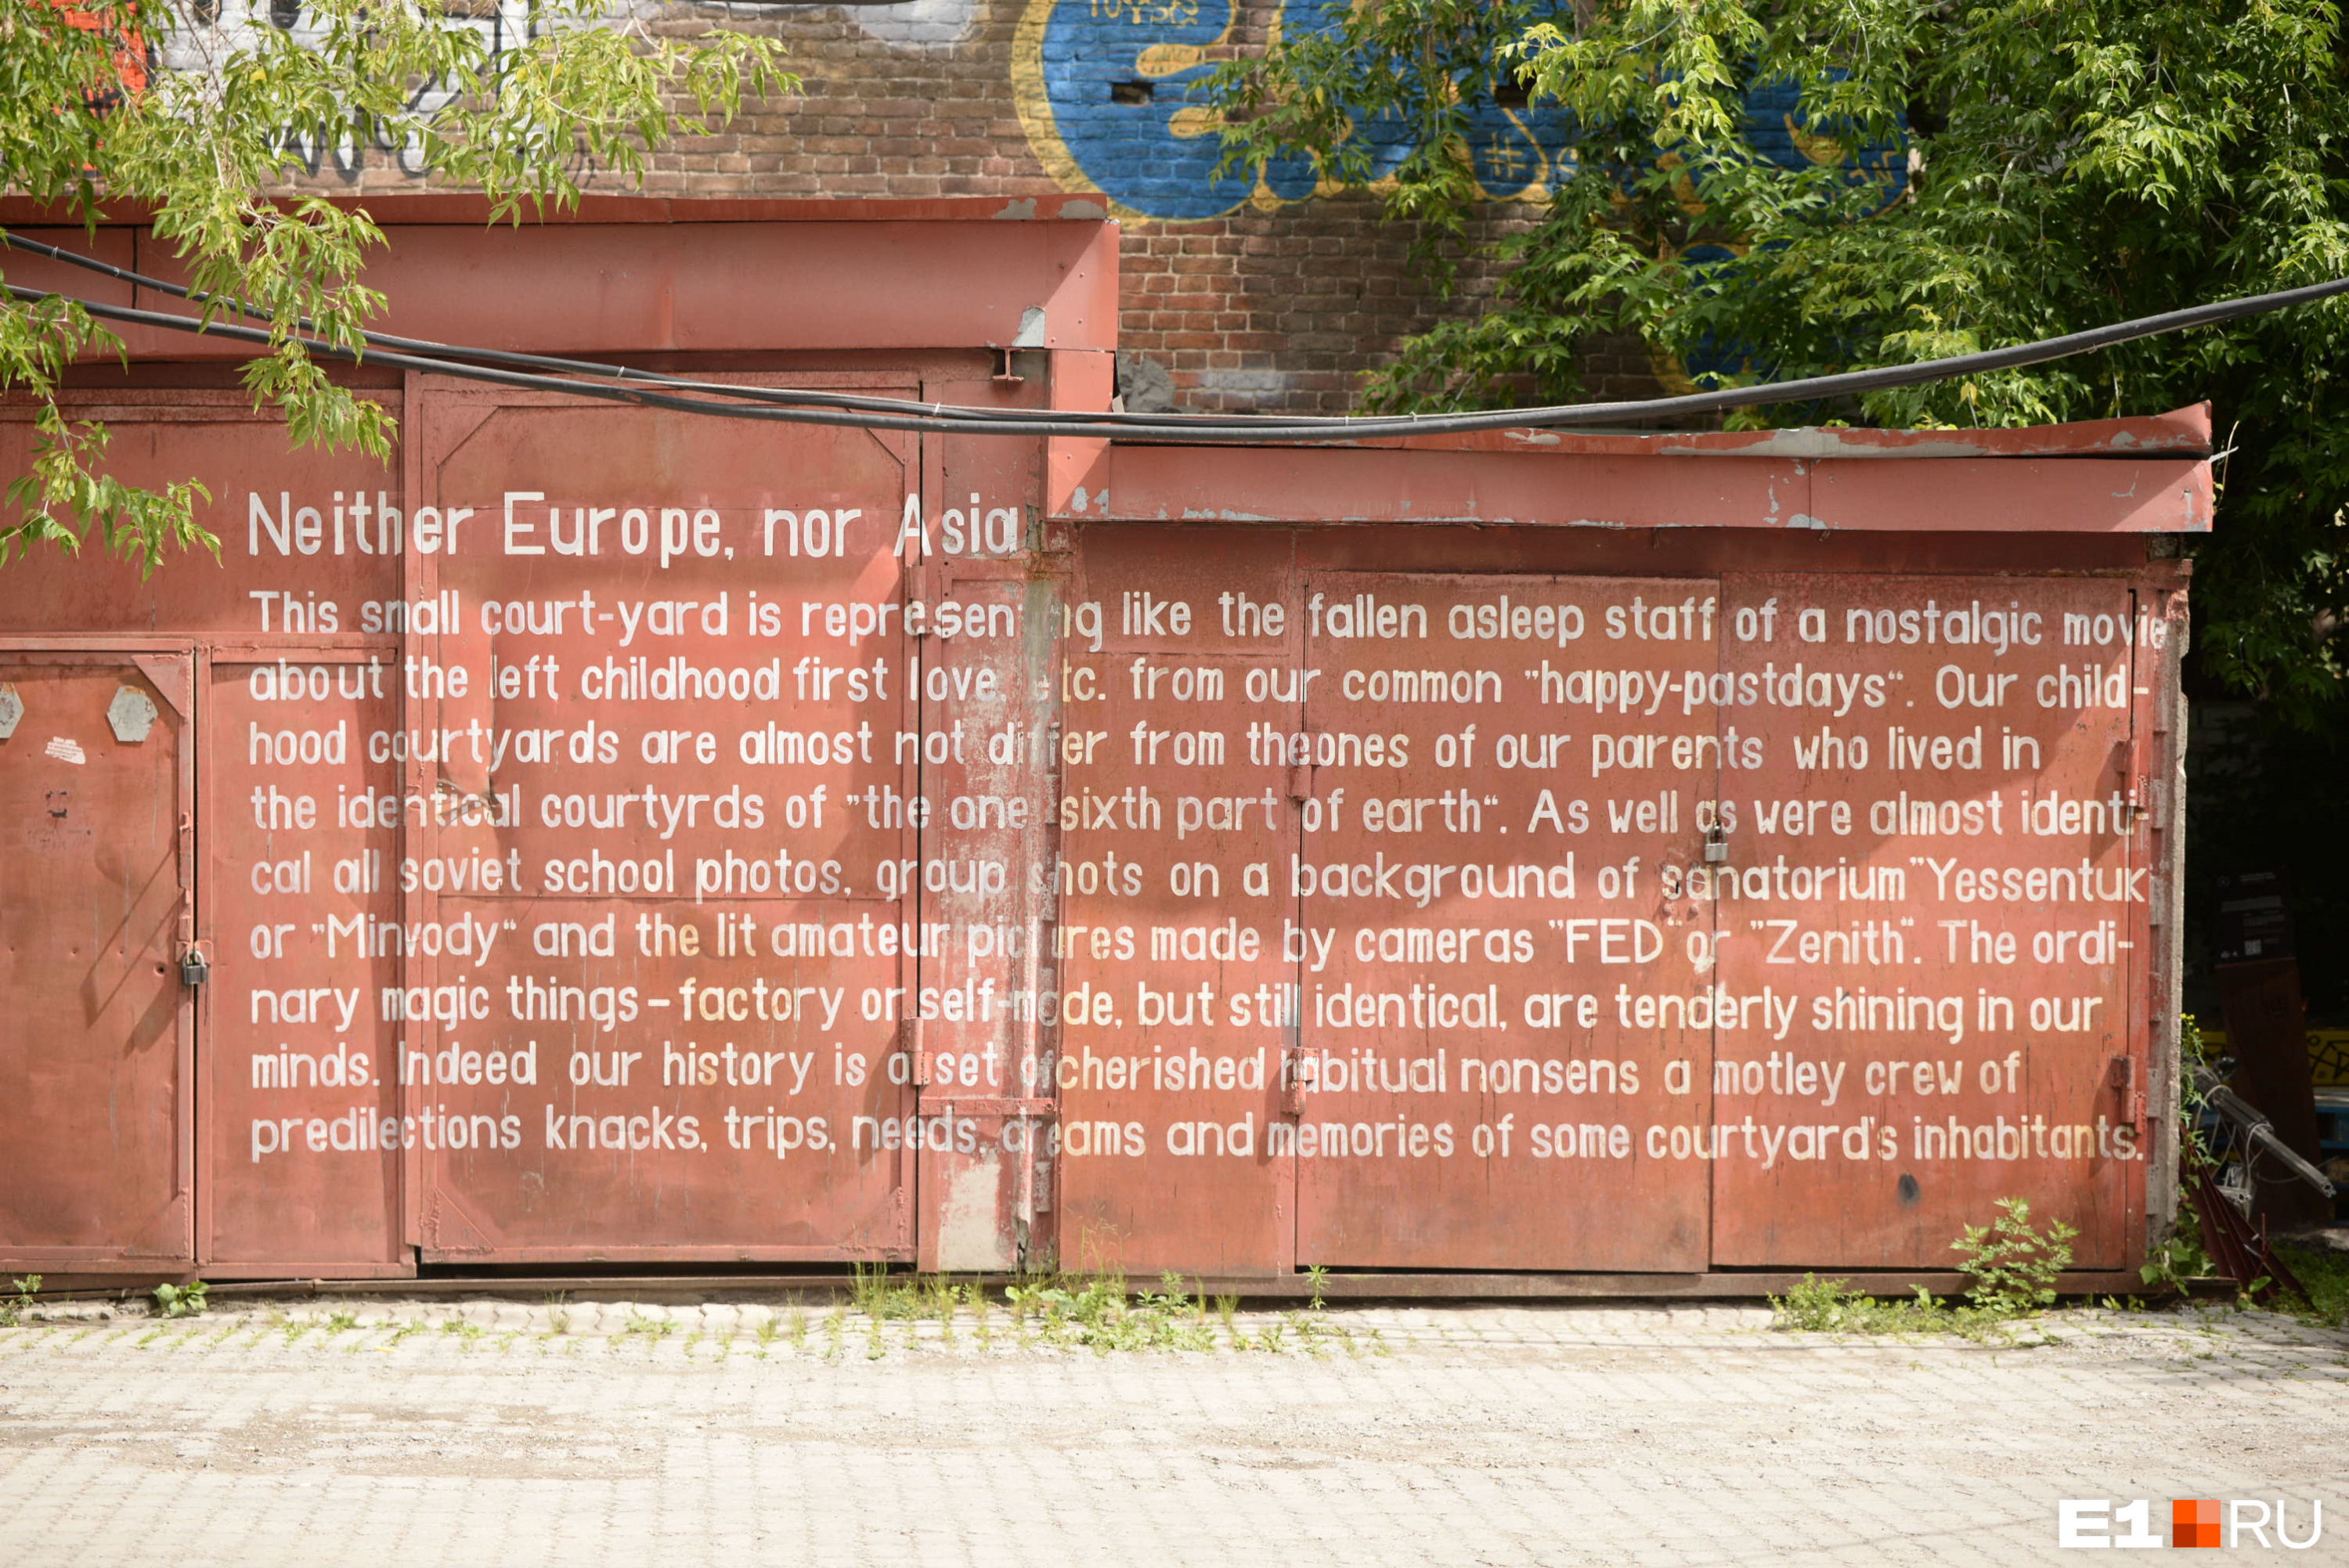 Neither Europe, nor Asia
This small court-yard is representing like the fallen asleep staff of a nostalgic movie
about the left childhood first love, etc. from our common "happy-pastdays". Our child-
hood courtyards are almost not differ from the ones of our parents who lived in
the identical courtyrds of "the one sixth part of earth". As well as were almost identi-
cal all soviet school photos, group shots on a background of sanatorium "Yessentuk
or "Minvody" and the lit amateur pictures made by cameras "FED" or "Zenith". The ordi-
nary magic things-factory or self-made, but still identical, are tenderly shining in our
minds. Indeed our history is a set of cherished habitual nonsens a motley crew of
predilections knacks, trips, needs, dreams and memories of some courtyard's inhabitants.
E1 RU